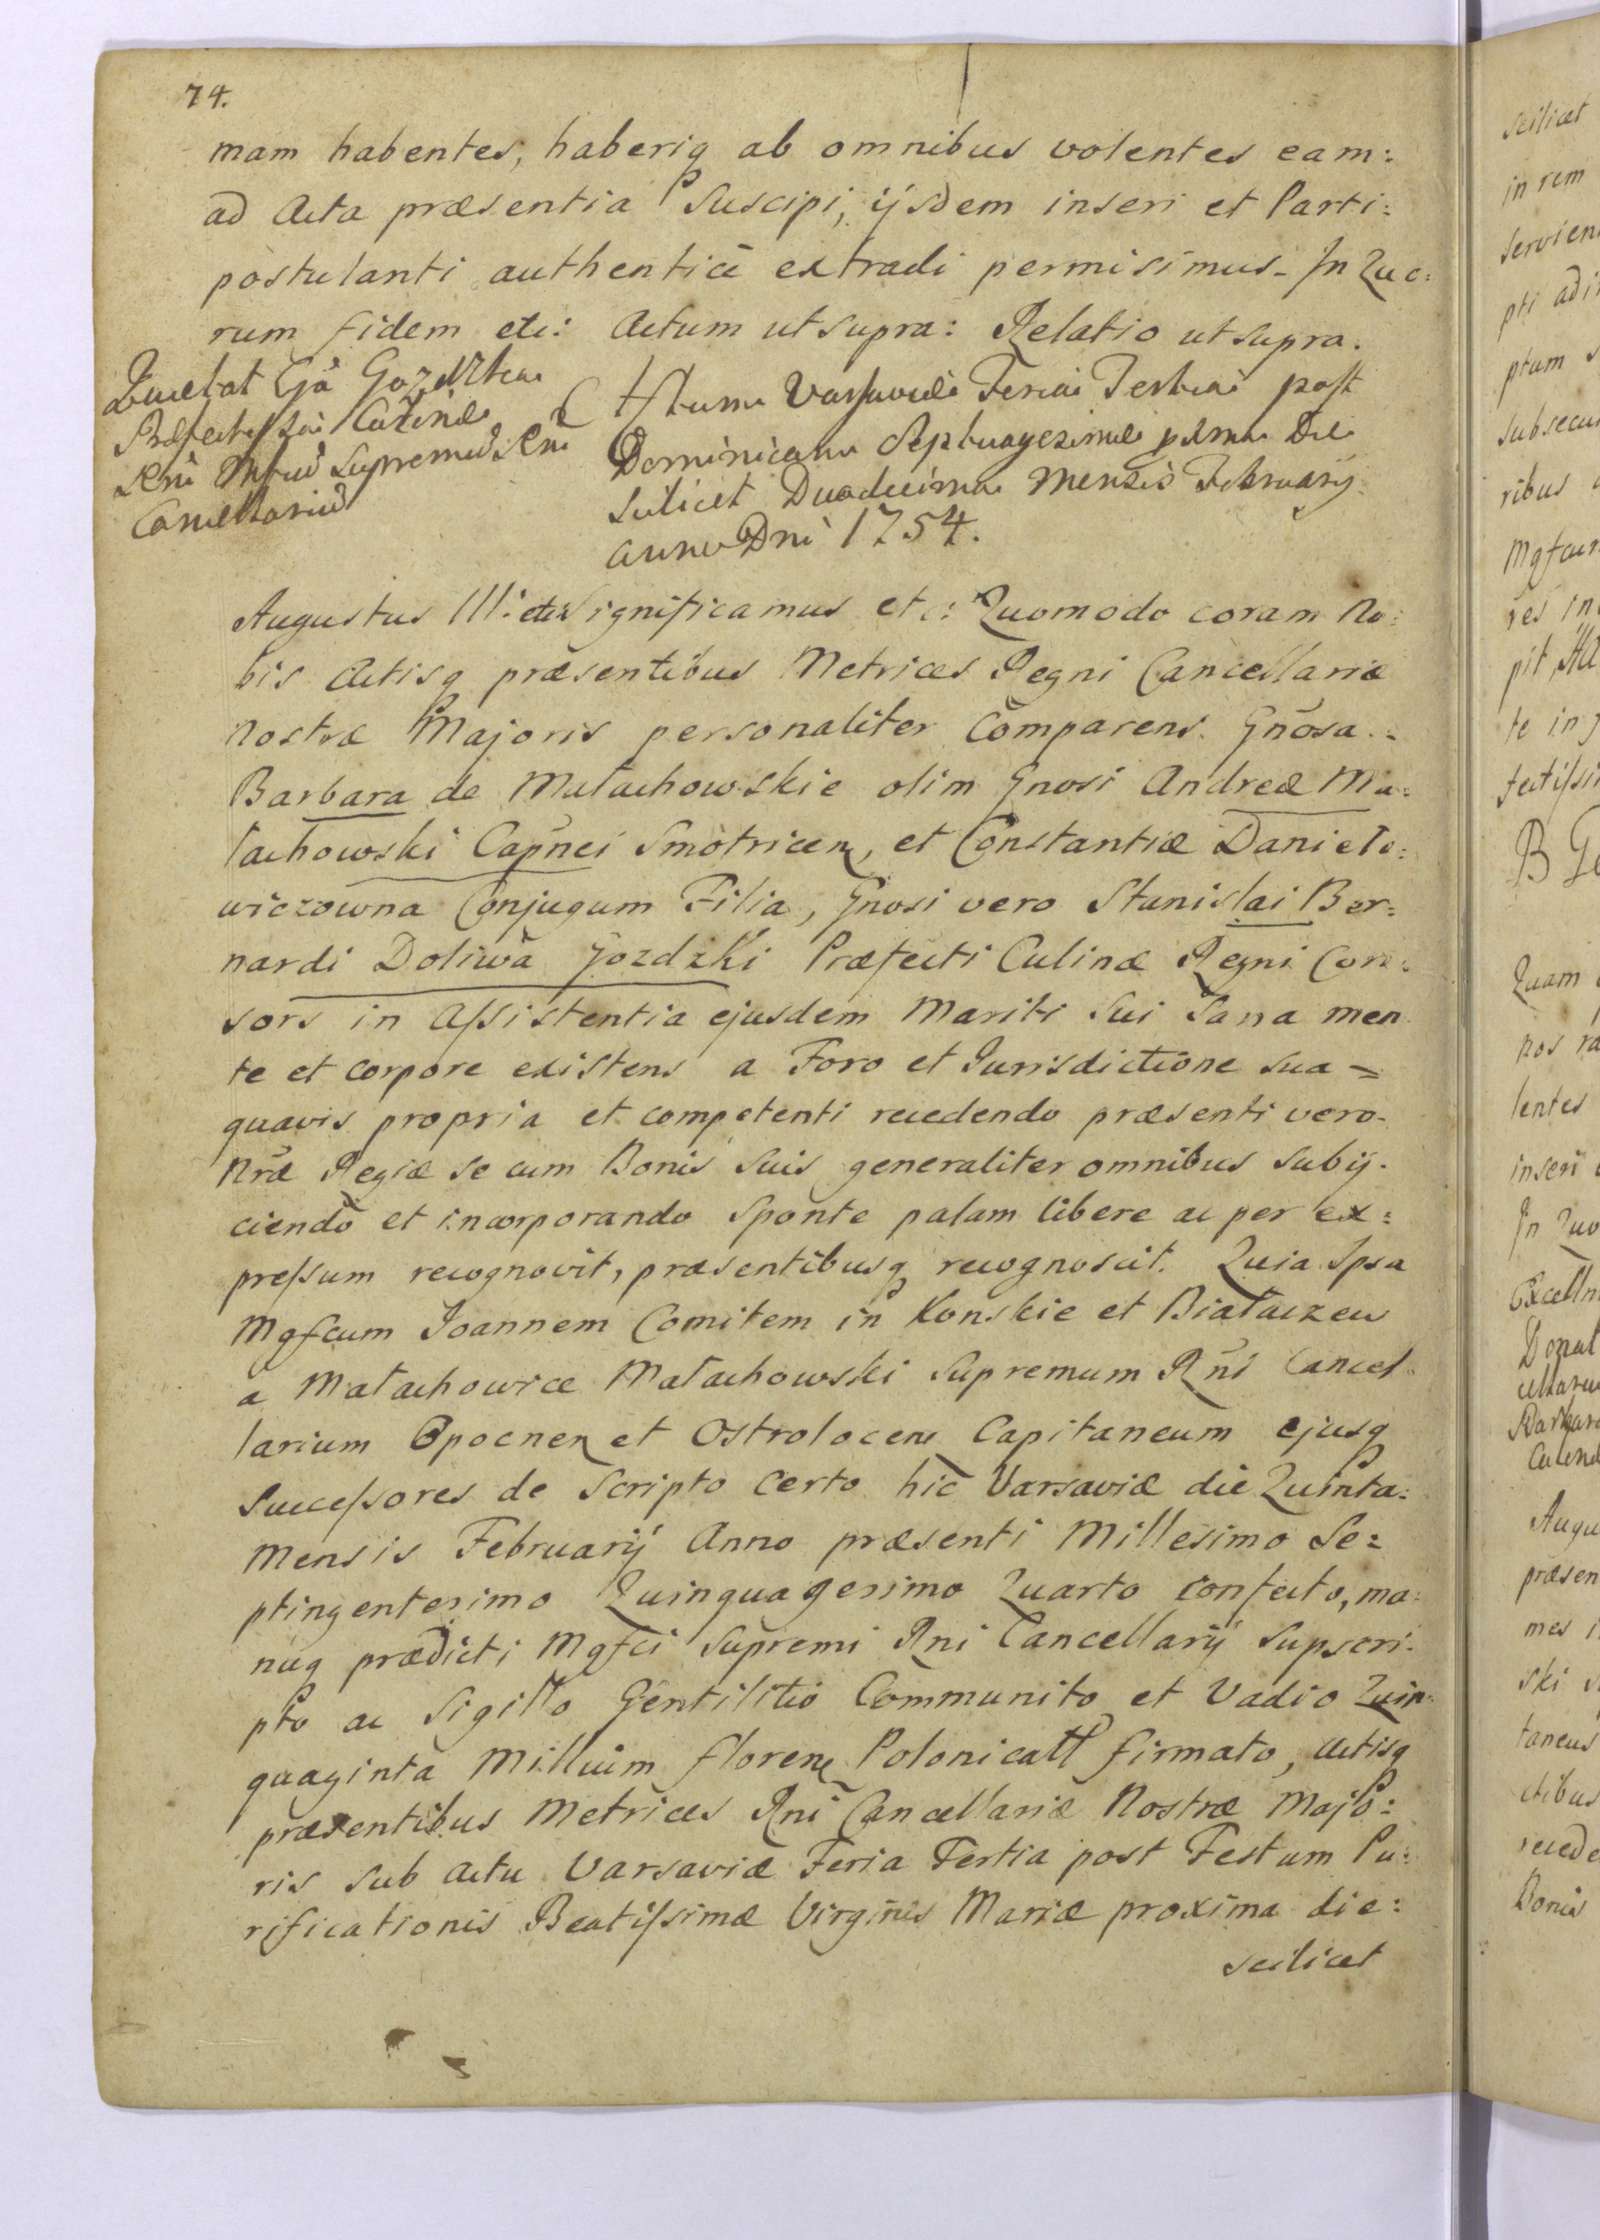 74.
mam habentes, haberiq ab omnibus volentes eam:
ad Acta præsentia Suscipi, ijsdem inseri et Parti:
postulanti authenticè extradi permisimus. In Quo:
rum fidem etc: Actum ut supra: Relatio ut supra.
Quietat Gsa Gozdzka
Præfectissa Culinæ
Regni Mfcus Supremus Rni
Cancellarius
Actum Varsaviæ Feria Tertia post
Dominicam Septuagesimæ pxima Die
Scilicet Duodecima Mensis February
Anno Dni 1754.
Augustus III: etc Significamus etc: Quomodo coram No:
bis Actisq præsentibus Metrices Regni Cancellariæ
Nostræ Majoris personaliter Comparens Gnosa
Barbara de Małachowskie olim Gnosi Andreæ Ma:
łachowski Capnei Smotricen, et Constantiæ Danieło:
wiczowna Conjugum Filia, Gnosi vero Stanislai Ber:
nardi Doliwa Gozdzki Præfecti Culinæ Regni Con:
sors in Assistentia ejusdem Mariti Sui Sana men
te et corpore existens a Foro et Jurisdictione sua =
quavis propria et competenti recedendo præsenti vero.
Nræ Regiæ se cum Bonis Suis generaliter omnibus subij.
ciendo et incorporando Sponte palam libere ac per ex:
pressum recognovit, præsentibusq recognoscit. Quia Ipsa
Mgfcum Joannem Comitem in Konskie et Białaczew
a Małachowice Małachowski Supremum Rni Cancel
larium Opocnen et Ostrołocen Capitaneum ejusq
Successores de Scripto Certo hic Varsaviæ die Quinta:
Mensis February Anno præsenti Millesimo Se:
ptingentesimo Quinquagesimo Quarto confecto, ma:
nuq prædicti Mgfci Supremi Rni Cancellarij supscri:
pto ac Sigillo Gentilitio Communito et Vadio Quin:
quaginta Millium floren Polonicall firmato, Actisq
præsentibus Metrices Rni Cancellariæ Nostræ Majo:
ris sub actu Varsaviæ Feria Tertia post Festum Pu:
rificationis Beatissimæ Virginis Mariæ proxima die:
scilicet
scilicet
in rem
servien
pti adi
ptum
subsecu
ribus
Mgfcu
res in
pit
te in
fectissi
Quam
nos ra
lentes
inseri
In Quo
Excelln
Donat
Barbar
Culinæ
Augu
præsen
mes
ski
taneus
ctibus
recede
Bonis